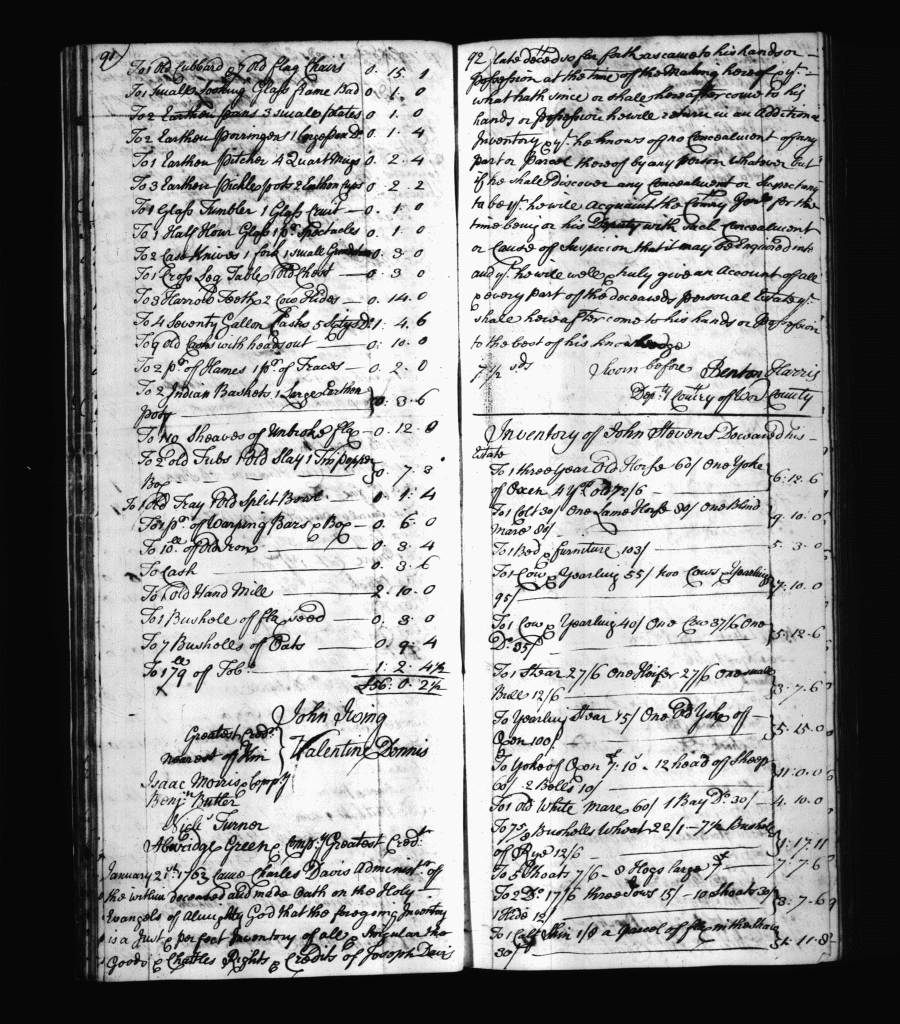 91
To 1 Old Cubbard & 7 old Flag Chairs 0. 15. 1
To 1 Small Looking Glass frame Bad 0. 1. 0
To 2 Earthen pans 3 small plates 0. 1. 0
To 2 Earthen porringers 1 0. 1. 4
To 1 Earthen pitcher 4 Quart Mugs 0. 2. 4
To 3 Earthen pickle pots 2 Earthen cups 0. 2. 2
To 1 Glass Tumbler 1 Glass Cruit 0. 1. 0
To 1 Half Hour Glass 1 pr. Spectacles 0. 1. 0
To 2 Case Knives 1 fork 1 small 0. 3. 0
To 1 Cross Leg Table 1 Old Chest 0. 3. 0
To 3 Harrow Teeth 2 Cow Hides 0. 14. 0
To 4 Seventy Gallon Casks 5 Do. 1: 4. 6
To 9 old Casks with heads out 0: 10. 0
To 2 pr. of Hames 1 pr. of Traces 0. 2. 0
To 2 Indian Baskets 1 Large Earthen
pott 0. 3. 6
To 110 Sheaves of Unbroke flax 0. 12. 8
To 2 old Tubs 1 Old Slay 1 pepper
Box 0. 7. 3
To 1 Old Tray 1 Old Split Bowl 0. 1: 4
To 1 pr. of Warping Bars & Box 0. 6. 0
To 10 ll. of Old Iron 0. 3. 4
To Cash 0. 3. 6
To 1 old Hand Mill 2. 10. 0
To 1 Bushole of flaxseed 0. 3. 0
To 7 Busholls of Oats 0. 9. 4
To 179 ll of Tob: 1: 2: 4½
£56: 0. 2½
John Irving
Greatest Credr.
Nearest of Kin
Valentine Dennis
Isaac Morris & Compy.
Benjn. Butler
Turner
Alwridge Green & Compy. Greatest Credt.
January 21st. 1763 Came Charles Davis Administr. of
the within deceased and made Oath on the Holy
Evangels of Almighty God that the foregoing Inventory
is a Just & perfect Inventory of all & Singular the
Goods & Chattles Rights & Credits of Joseph Davis
92 late deced so far forth as came to his hands or
possession at the time of the making hereof & yt.
what hath since or shall hereafter come to his
hands or possession he will return in an Additional
Inventory & yt. he knows of no Concealment of any
part or Parcel thereof by any person Whatever but
if he shall Discover any Concealment or Suspect any
to be yt. he will Acquaint the County for the
time being or his Deputy with such Concealment
or Cause of Suspicion that it may be Enquired into
and yt. he will well & truly give an Account of all
& every part of the deceaseds personal Estate yt.
shall hereafter come to his hands or possession
to the best of his knowledge
7½ sds Sworn before Benton Harris
Depty. Comry of Wor County
Inventory of John Stevens Deceased his
Estate
To 1 three Year Old Horse 60/ One Yoke
of Oxen 4 yr. old 72/6 6: 12. 6
To 1 Colt 30/ One Lame Horse 80/ One Blind
Mare 80/ 9. 10. 0
To 1 Bed & furniture 103/ 5. 3. 0
To 1 Cow & Yearling 55/ two Cows & Yearling
95/ 7: 10. 0
To 1 Cow & Yearling 40/ One Cow 37/6 One
Do. 35/ 5: 12. 6
To 1 Stear 27/6 One Heifer 27/6 One small
Bull 12/6 3: 7. 6
To Yearling Stear 15/ One Old Yoke of
Oxen 100/ 5: 15. 0
To Yoke of Oxen 7: 10 12 head of Sheep
60/ 2 Bells 10/ 11: 0. 0
To 1 old White Mare 60/ 1 Bay Do. 30/ 4. 10. 0
To 75 Busholls Wheat 22/1 7½ Bushels
of Rye 12/6 17. 11
To 5 Shoats 7/6 8 Hogs large 7: 7. 6
To 2 Do. 17/6 three Sows 15/ 10 Shoats 30/
1 Hide 12/ 3: 7. 6
To 1 Calf Skin 1/8 a parcel of flax in the Straw
30/ 1. 11. 8